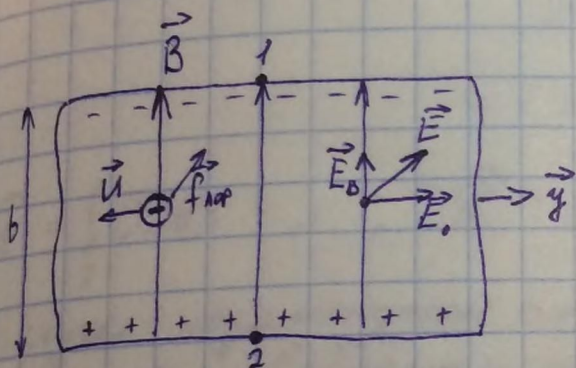 B⃗ 1
- - - - - - - -
E⃗
u⃗ + f⃗лор E⃗в
b E⃗₀ y⃗
+ + + + + + + +
2